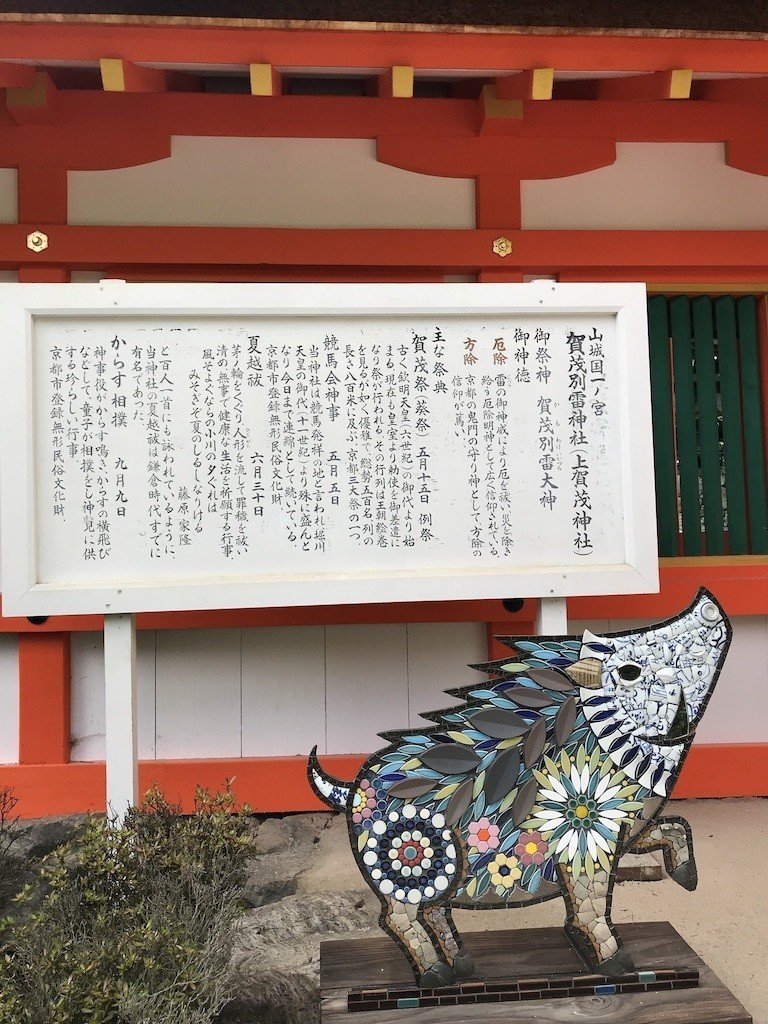 山城国一ノ宮
賀茂別雷神社(上賀茂神社)
御祭神 賀茂別雷大神
御神徳
厄除 雷の御神威により厄を祓い災を除き
給う厄除明神として広く信仰されている。
方除 京都の鬼門の守り神として、方除の
信仰が篤い。
主な祭典
賀茂祭(葵祭) 五月十五日 例祭
古く欽明天皇(六世紀)の御代より始
まる。現在も皇室より勅使を御差遣に
なり祭が行われる。その行列は王朝絵巻
を見るが如く優雅で総勢五百名列の
長さ八百米に及ぶ。京都三大祭の一つ。
競馬会神事 五月五日
当神社は競馬発祥の地と言われ堀川
天皇の御代(十一世紀)より殊に盛んと
なり今日まで連綿として続いている。
京都市登録無形民俗文化財
夏越祓 六月三十日
茅の輪をくぐり人形を流して罪穢を祓い
清め無事で健康な生活を祈願する行事
風そよぐならの小川の夕ぐれは
みそぎぞ夏のしるしなりける
藤原家隆
と百人一首にも詠われているように、
当神社の夏越祓は鎌倉時代すでに
有名であった。
からす相撲 九月九日
神事役がからす鳴き、からすの横飛び
などして、童子が相撲をし神覧に供
する珍らしい行事
京都市登録無形民俗文化財